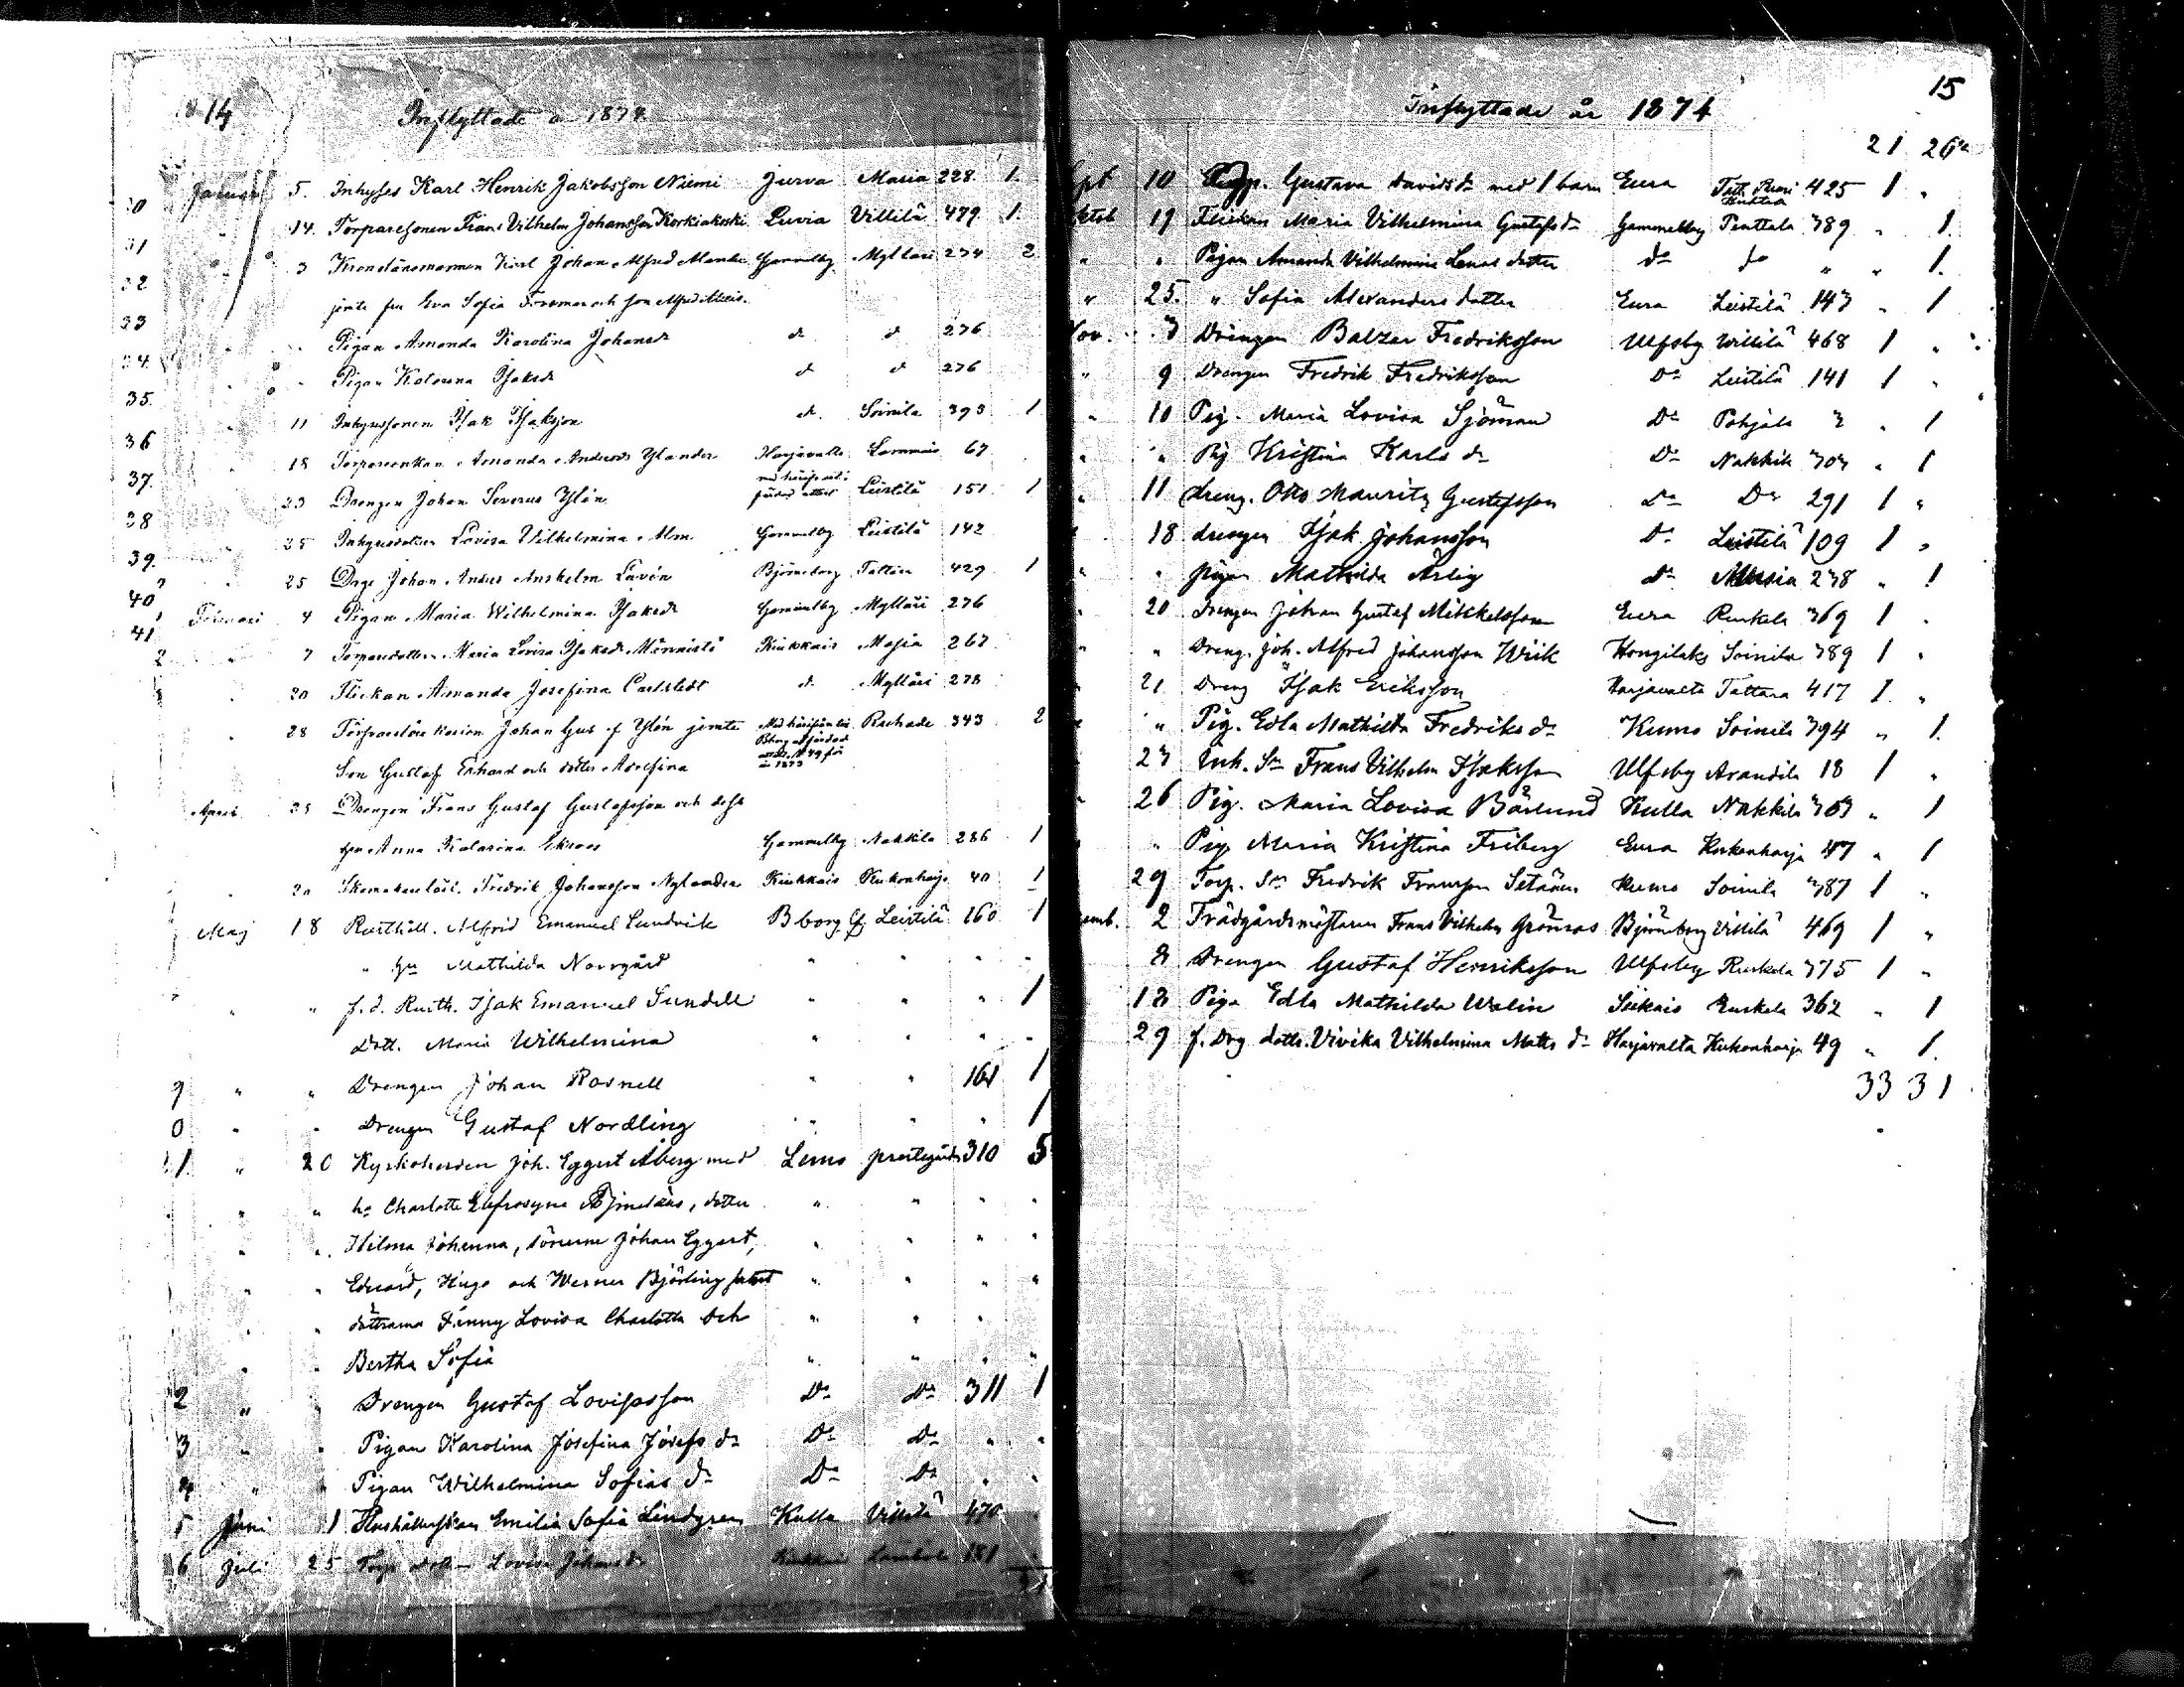 14
Inflyttade år 1874
Januari 5. Inhyses Karl Henrik Jakobsson Niemi Jurva Maria 228 1
14. Torparesonen Frans Vilhelm Johansson Korkiakoski Luvia Villilä 479 1
31 3 Kronolänsmannen Karl Johan Alfred Gammelby Mylläri 274 2
32 jemte fru Eva Sofia och son Alfred
33 Pigan Amanda Karolina Johansdr d d 276
34. Pigan Katarina Isaksdr d d 276
35. 11 Inhysessonen Isak Isaksson d. Soinila 393 1
36 18 Torpareenkan Amanda Andersdr Ylander Harjavalta Lammais 67
37. 23 Drengen Johan Severus Ylén Leistilä 151 1
38 25 Inhysesdottren Lovisa Vilhelmina Alm Gammelby Leistilä 142
39. 25 Drge Johan Anders Anshelm Lavén Björneborg Tattara 429 1
40 Februari 4 Pigan Maria Wilhelmina Isaksdr Gammelby Mylläri 276
41 7 Torparedottren Maria Lovisa Isaksdr Männistö Kiukkais Masia 267
20 Flickan Amanda Josefina Carlstedt d. Mylläri 278
28 Johan Gustaf Ylén jemte Ruskela 343 2
Son Gustaf Enhard och dotter Adolfina
April 25 Drengen Frans Gustaf Gustafsson och dess
hu Anna Katarina Ekroos Gammelby Nakkila 286 1
20 Skomakarelärl. Fredrik Johansson Nylander Kiukkais Kukonharja 40 1
Maj 18 Rusthåll. Alfrid Emanuel Lundvik B borg Leistilä 160 1
" hu Mathilda Norrgård " " " "
" " f.d. Rusth. Isak Emanuel Sundell " " " 1
Dott. Maria Wilhelmina " " " "
9 " " Drengen Johan Rosnell " " 161 1
0 " " Drengen Gustaf Nordling " " " 1
1. " 20 Kyrkoherden Joh. Eggert Åberg med Lemo prestegård 310 5
" " ha Charlotte Eufrosyne Björnelæus, dotter " " " "
" " Hilma Johanna, sönerne Johan Eggert, " " " "
" " Edvard, Hugo och Werner Björling samt " " " "
" " döttrarna Fanny Lovisa Charlotta och " " "
" " Bertha Sofia " " " "
2 " " Drengen Gustaf Lovisasson Do Do 311 1
3 " " Pigan Karolina Josefina Josefs dr Do Do " "
4 " " Pigan Wilhelmina Sofias dr Do Do " "
5 Juni 1 Hushållerskan Emilia Sofia Lindgren Kulla Villilä 470
6 Juli 25 Torp dott Lovisa Johansdr Kiukkais 181
15
Inflyttade år 1874
21 26
Sept 10 Gustava Davidsdr med 1 barn Eura 425 1 "
Oktob 19 Flickan Maria Vilhelmina Gustafsdr Gammelby Penttala 389 " 1.
" " Pigan Amanda Vilhelmina Lenas dotter do do " " 1.
" 25. " Sofia Alexanders dotter Eura Leistilä 147 " 1
Nov. 3 Drängen Balzar Fredriksson Ulfsby Willilä 468 1 "
" 9 Drengen Fredrik Fredriksson Do Leistilä 141 1 "
" 10 Pig. Maria Lovisa Sjöman Do Pohjala ? " 1
" " Pig Kristina Karls dr Do Nakkila 303 " 1
" 11 dreng. Otto Mauritz Gustafsson Do Do 291 1 "
18 drengen Isak Johansson Do Leistilä 109 1 "
" " pigan Mathilda Ärlig Do Masia 238 " 1
20 Drengen Johan Gustaf Mikkelsson Eura Ruskela 369 1 "
" " Dreng. Joh. Alfred Johansson Wiik Hongilaks Soinila 389 1 "
21 Dreng Isak Eriksson Harjavalta Tattara 417 1 "
" Pig. Edla Mathilda Fredriks dr Kumo Soinila 394 " 1.
23 Inh. Sn Frans Vilhelm Isaksson Ulfsby Arandila 18 1 "
" 26 Pig. Maria Lovisa Bärlund Kulla Nakkila 303 " 1
" Pig Maria Kristina Friberg Eura Kukonharja 47 " 1
29 Torp. Sn Fredrik Fransson Setänen Kumo Soinila 387 1 "
Decemb. 2 Trädgårdsmästaren Frans Vilhelm Grönroos Björneborg Villilä 469 1 "
8 Drengen Gustaf Henriksson Ulfsby Ruskela 375 1 "
18 Piga Edla Mathilda Walin Siikais Ruskela 362 " 1
29 f. Drg dottr. Vivika Vilhelmina Matts dr Harjavalta Kukonharja 49 " 1.
33 31